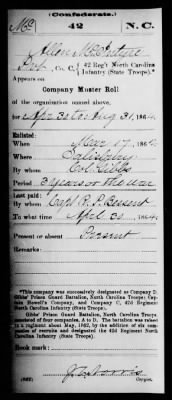 (Confederate.)
Mc 42 N.C.
Allen McIntire
Pvt, Co. C, 42 Reg't North Carolina
Infantry (State Troops).*
Appears on
Company Muster Roll
of the organization named above,
for Apr 30 to Aug 31, 1864.
Enlisted:
When Mar 17, 1862
Where Salisbury
By whom Col. Gibbs
Period 3 years or the war
Last paid:
By whom Capt. R. P. Bessent
To what time April 30, 1864.
Present or absent Present
Remarks:
*This company was successively designated as Company D,
Gibbs' Prison Guard Battalion, North Carolina Troops; Cap-
tain Howell's Company, and Company C, 42d Regiment
North Carolina Infantry (State Troops).
Gibbs' Prison Guard Battalion, North Carolina Troops,
consisted of four companies, A to D. The battalion was raised to
a regiment about May, 1862, by the addition of six companies
of recruits and designated the 42d Regiment North
Carolina Infantry (State Troops).
Book mark:
(642) Copyist.